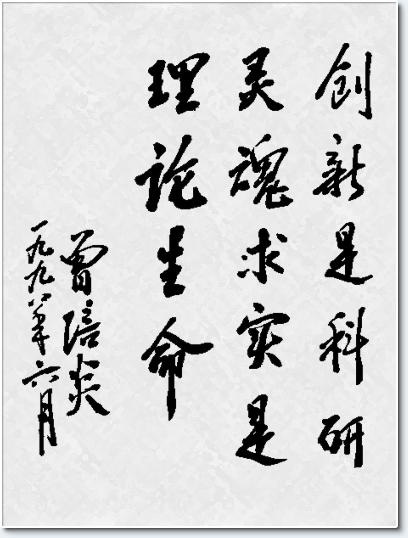 创新是科研
灵魂求实是
理论生命
曾培炎
一九九八年六月